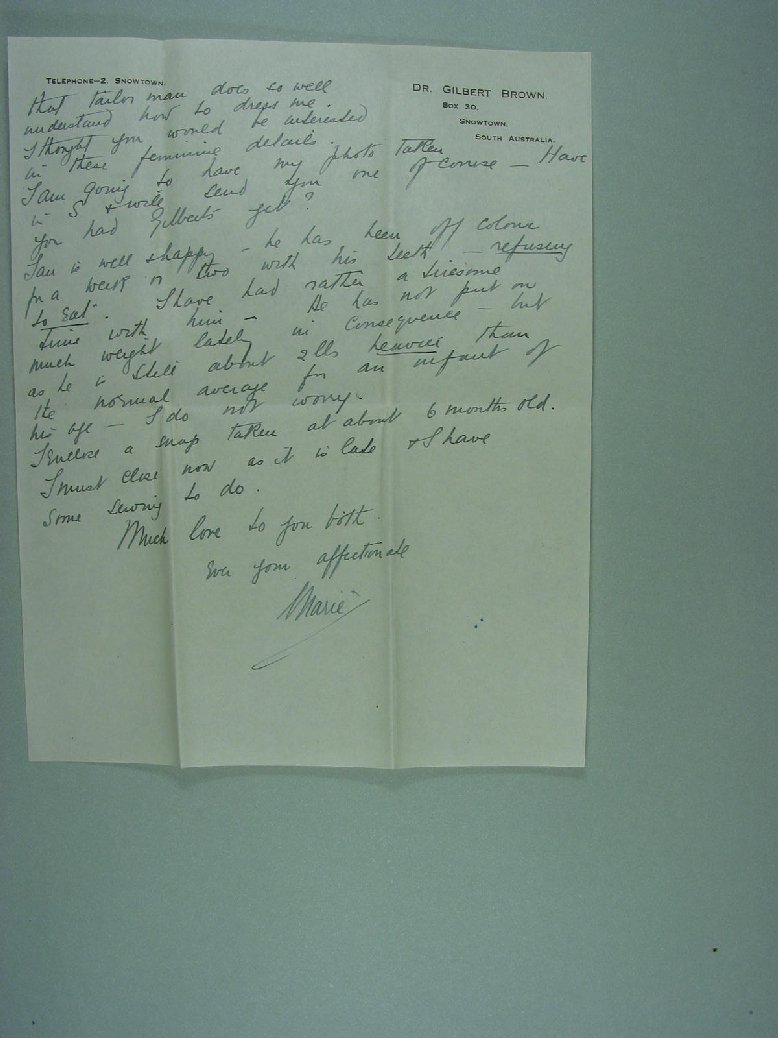 TELEPHONE—2, SNOWTOWN.
DR. GILBERT BROWN.
BOX 30,
SNOWTOWN,
SOUTH AUSTRALIA.
that tailor man does so well
understand how to dress me.
I thought you would be interested
in these feminine details.
I am going to have my photo taken
in S & will send you one of course — Have
you had Gilbert's yet?
Ian is well & happy — he has been off colour
for a week or two with his teeth — refusing
to eat. I have had rather a tiresome
time with him — He has not put on
much weight lately in consequence — but
as he is still about 2 lbs heavier than
the normal average for an infant of
his age — I do not worry.
I enclose a snap taken at about 6 months old.
I must close now as it is late & I have
some sewing to do.
Much love to you both.
Ever your affectionate
Marie